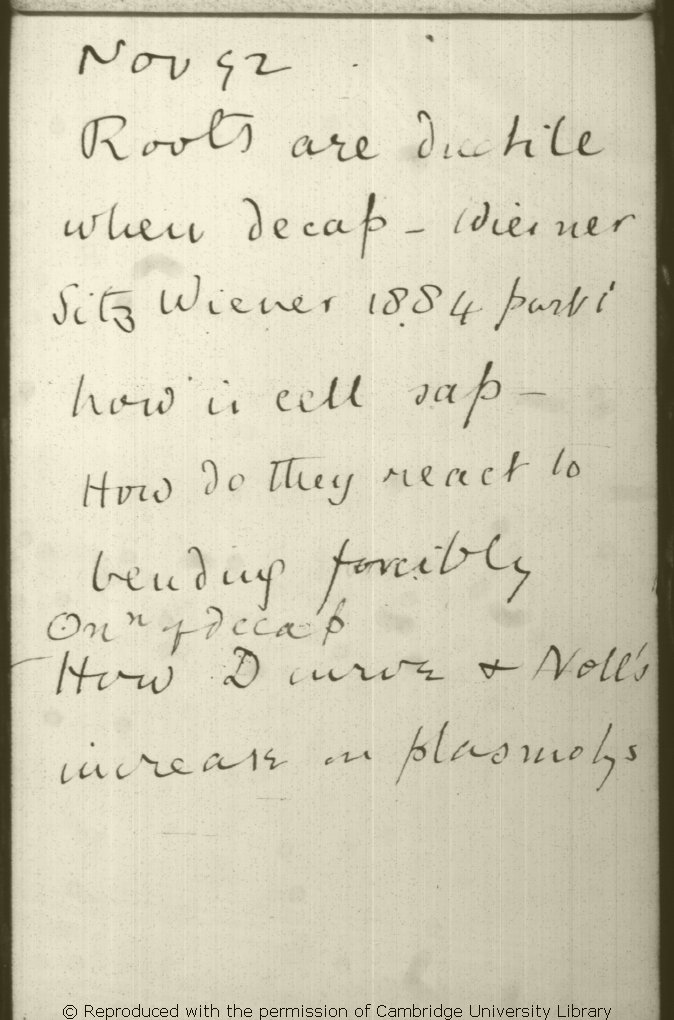 Nov 92
Roots are ductile
when decap – Wiesner
Sitz Wiener 1884 part i
how is cell sap –
How do they react to
bending forcibly
On of decap
How D curve & Noll's
increase on plasmolys
© Reproduced with the permission of Cambridge University Library